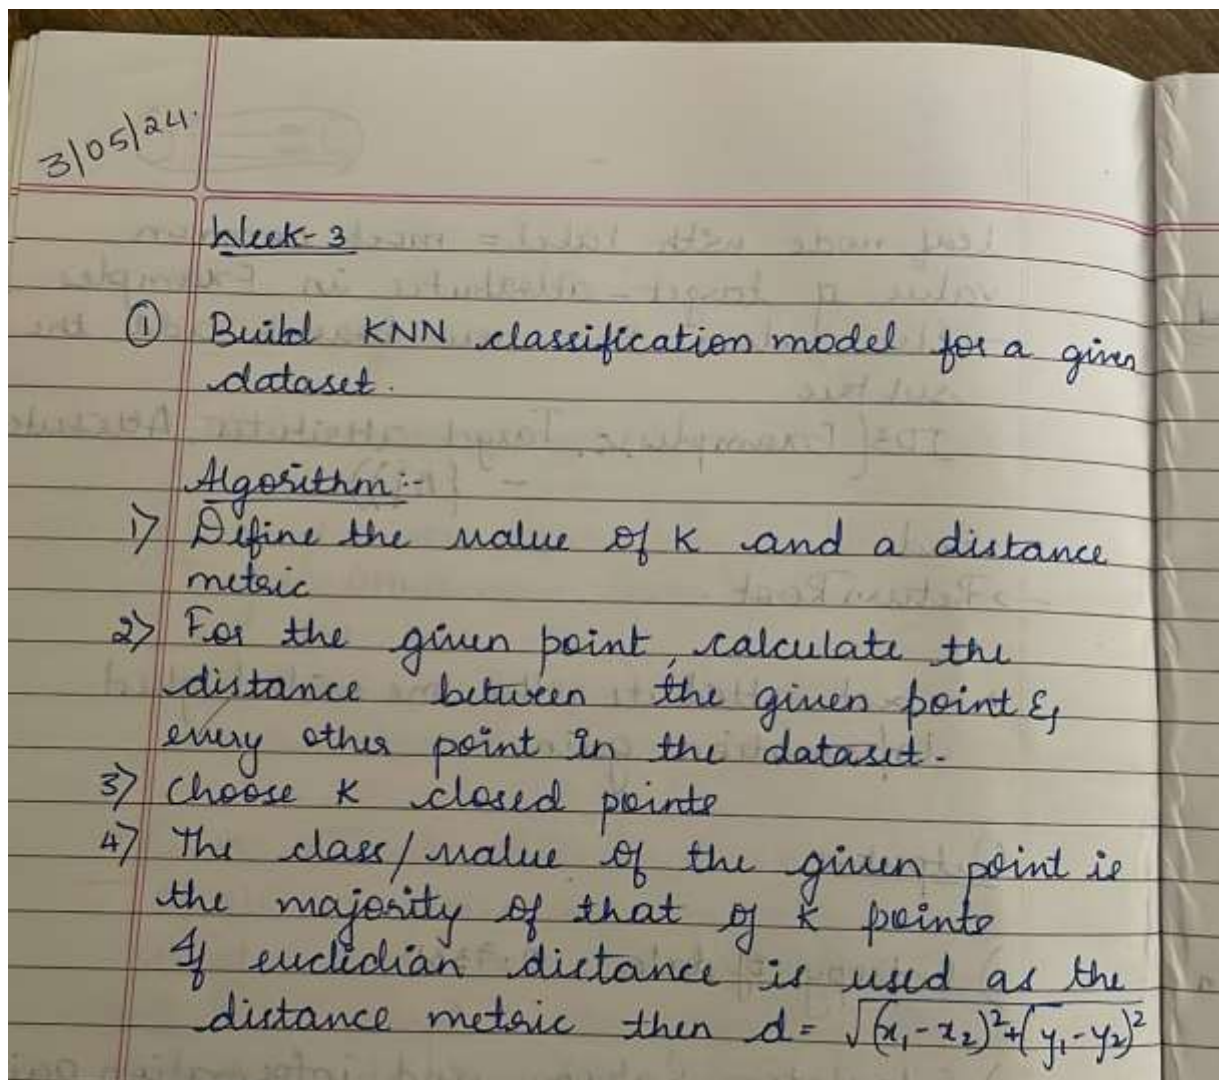 3/05/24.
Week-3
① Build KNN classification model for a given
dataset.
Algorithm:-
1) Define the value of K and a distance
metric
2) For the given point, calculate the
distance between the given point &
every other point in the dataset.
3) Choose K closed points
4) The class/value of the given point is
the majority of that of K points
If euclidian distance is used as the
distance metric then d = √(x₁-x₂)²+(y₁-y₂)²